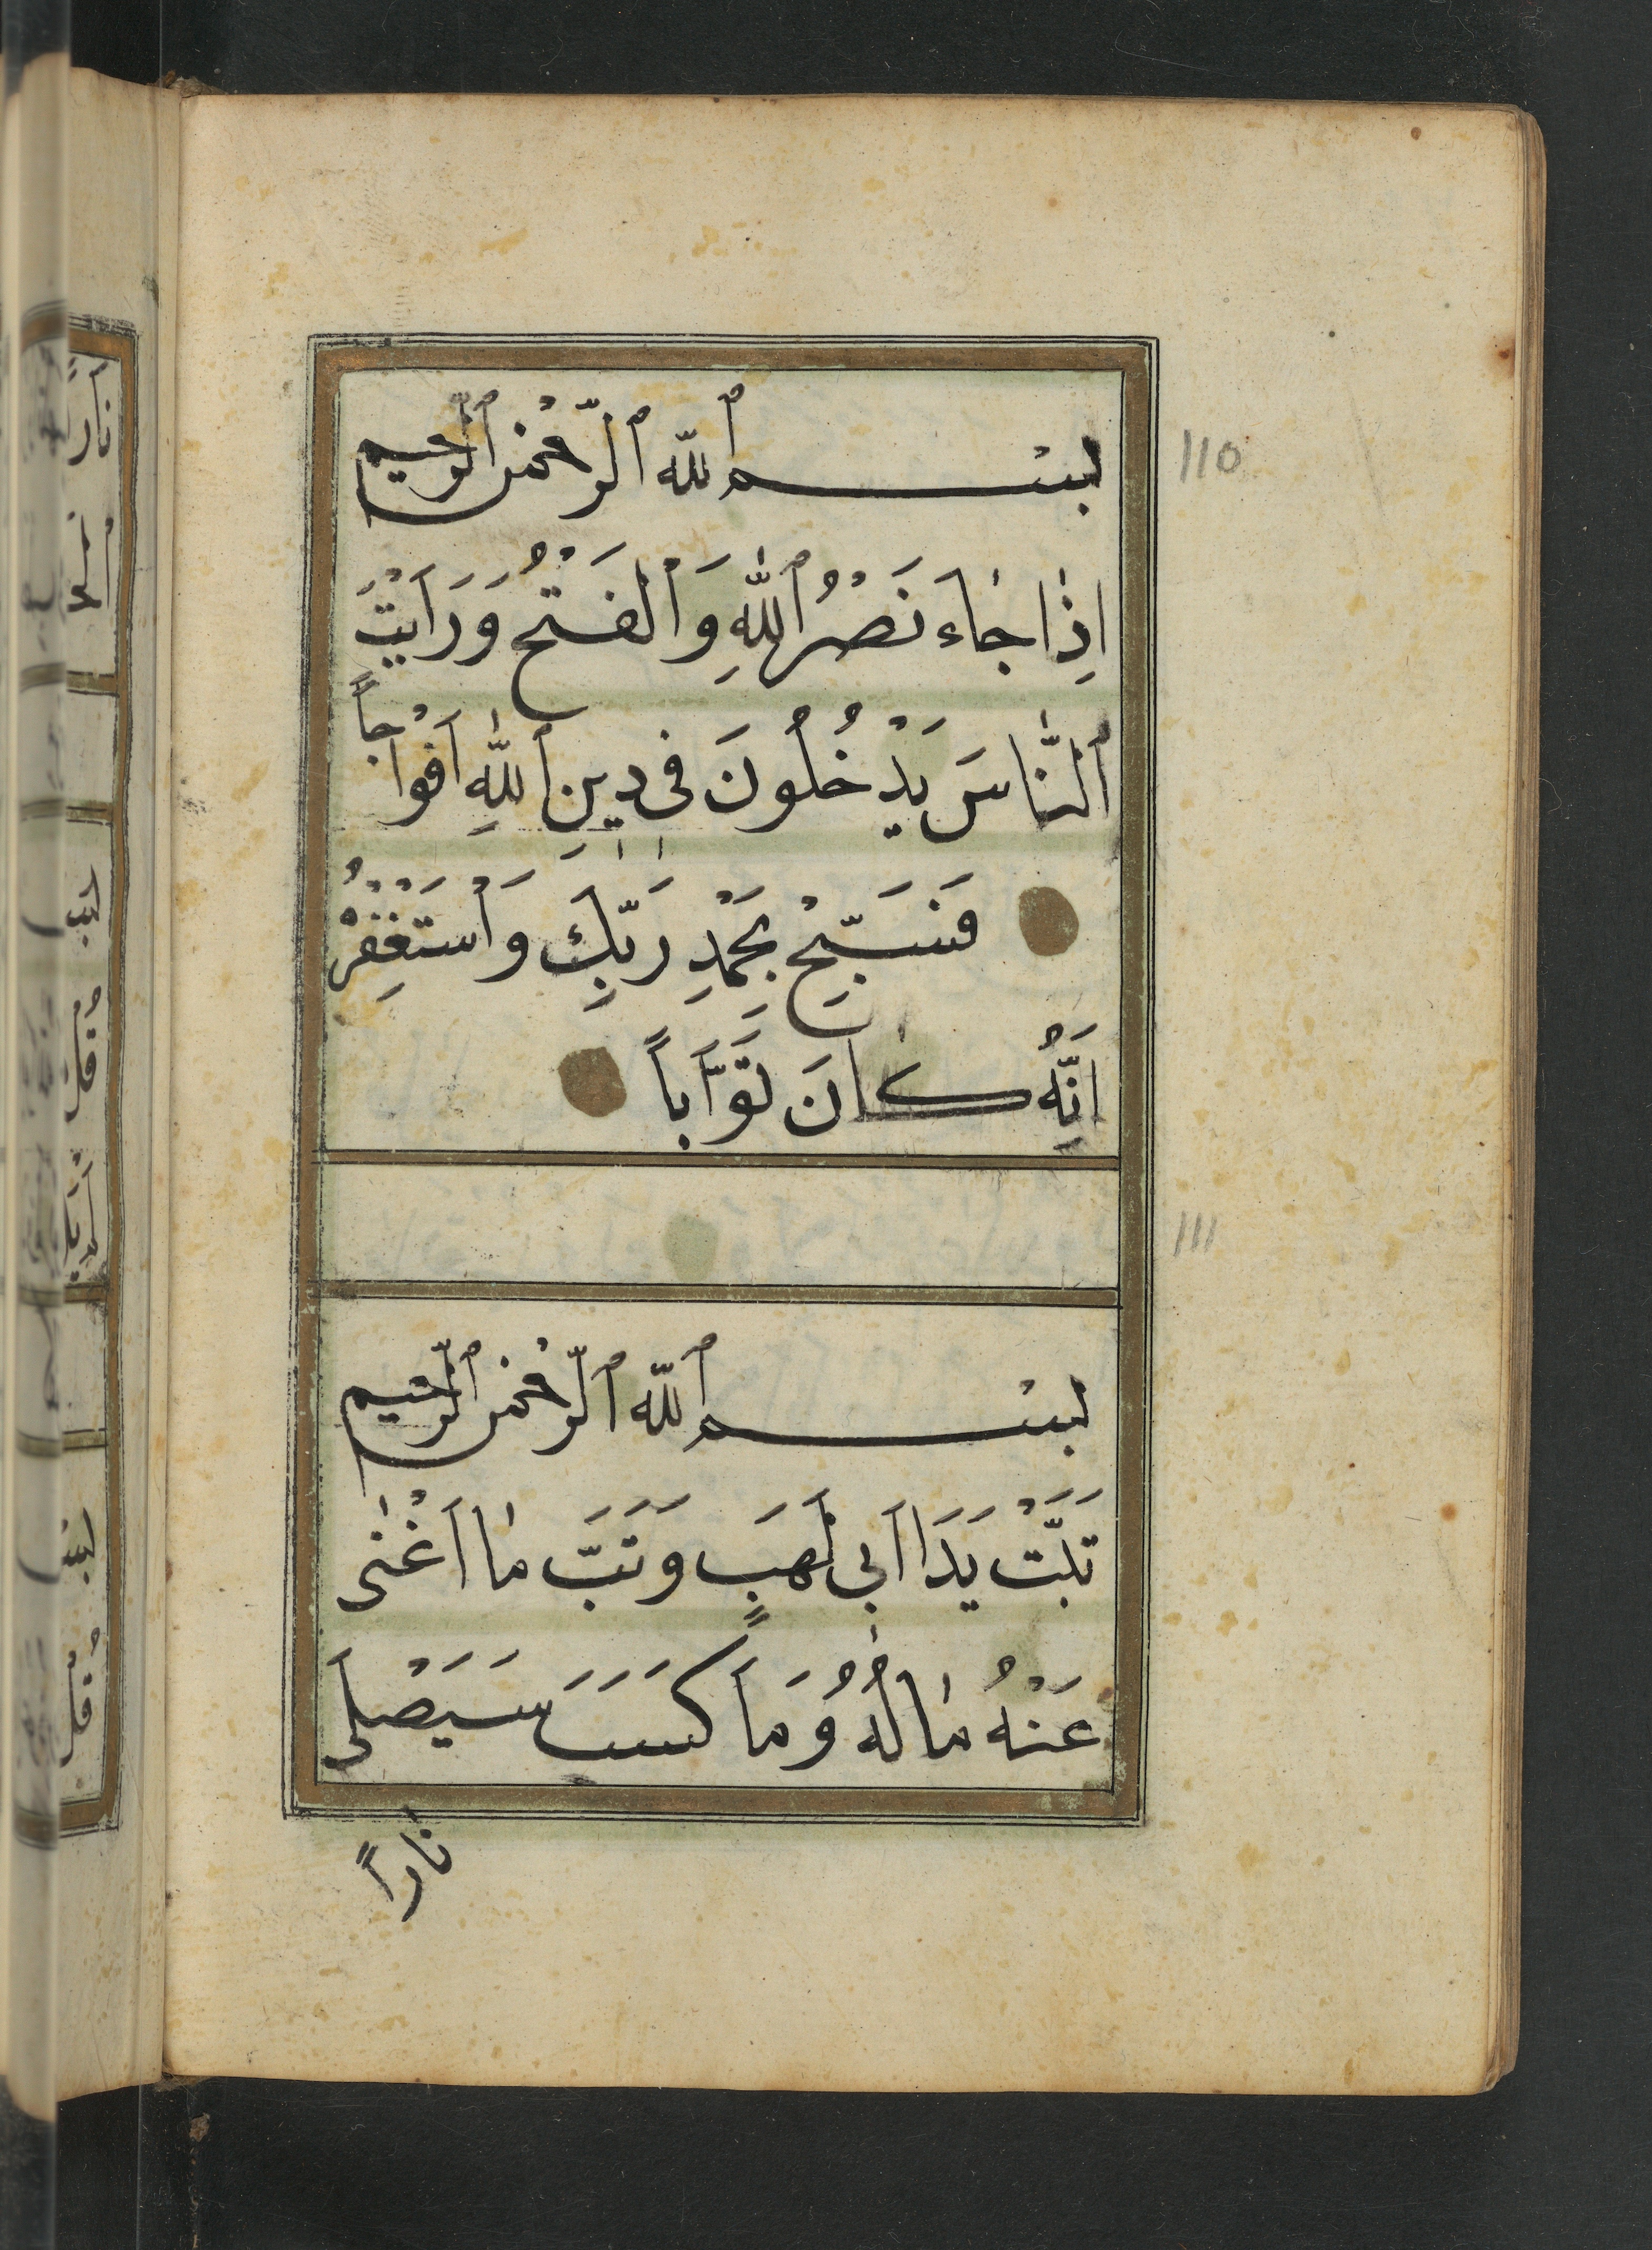 بسم ٱللّه ٱلرّحمٰن ٱلرّحيم
110
اِذٰا جٰاءَ نَصْرُ ٱللّٰهِ وَٱلْفَتْحُ وَرَاَيْتَ
ٱلنّٰاسَ يَدْخُلُونَ فى دينِ ٱللّٰهِ اَفْوٰاجاً
فَسَبِّحْ بِحَمْدِ رَبِّكَ وَٱسْتَغْفِرْهُ
اِنَّهُ كٰانَ تَوَّاباً
111
بسم ٱللّه ٱلرّحمٰن ٱلرّحيم
تَبَّتْ يَدَا اَبى لَهَبٍ وَتَبَّ مٰا اَغْنٰى
عَنْهُ مٰالُهُ وَمَا كَسَبَ سَيَصْلَى
نٰاراً